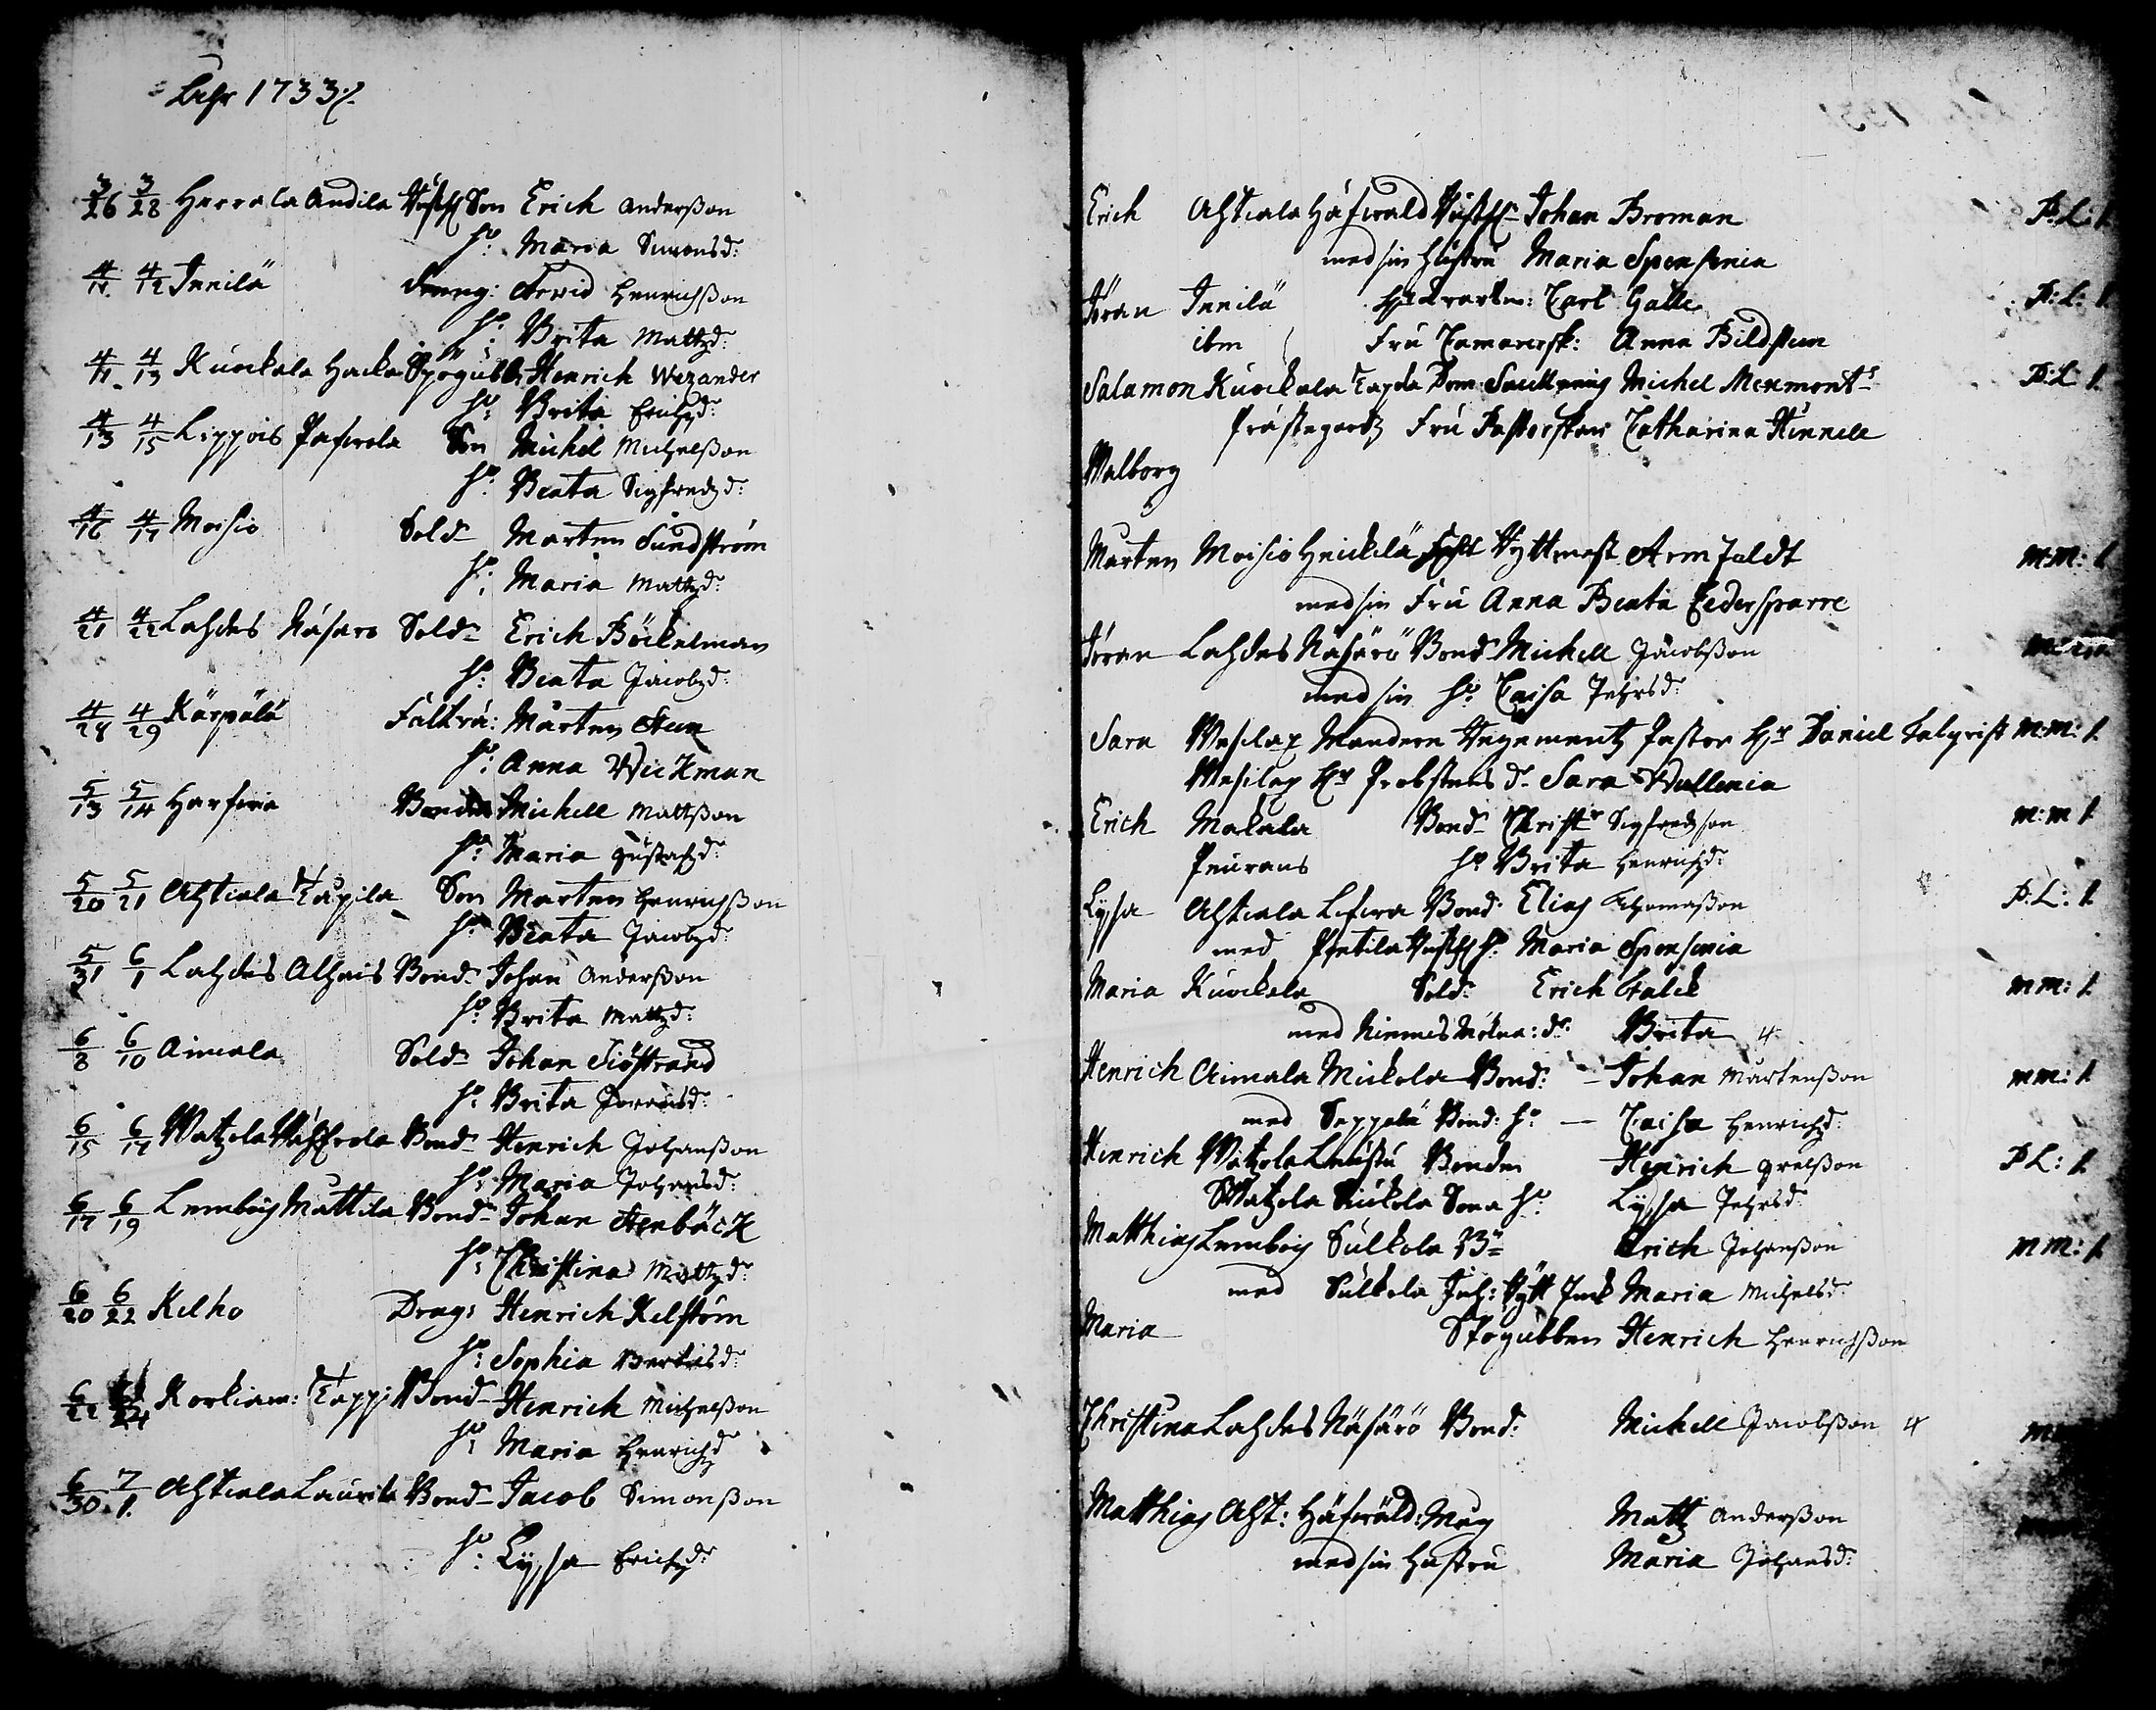 Åhr 1733
3/26 3/28 Herrala Andila Son Erich Anderßon
h: Maria Simonsd:
4/11 4/12 Innilä Dreng: Arvid Henrichßon
h: Brita Mattzd:
4/11 4/13 Kuockala Henrich Wezander
h: Brita Erichzd:
4/13 4/15 Lippois Pafwola Son Michel Michelßon
h: Beata Sigfredzd:
4/16 4/17 Moisio Sold Marten Sundström
h: Maria Mattzd:
4/21 4/22 Lahdes Näsärö Sold Erich Böckelman
h: Beata Jacobzd:
4/28 4/29 Kärpälä Mårten Steen
h: Anna Weckman
5/13 5/14 Harfwia Bonden Michell Mattßon
h: Maria Gustafzd:
5/20 5/21 Ahtiala Tapila Son Marten Henrichßon
h: Beata Jacobzd:
5/31 6/1 Lahdes Alhais Bond Johan Anderßon
h: Brita Mattzd:
6/8 6/10 Aimala Sold Johan Siöstrand
h: Brita Joransd:
6/15 6/17 Watzola Bond Henrich Johanßon
h: Maria Johansd:
6/17 6/19 Lemböis Mattila Bond Johan Stenbäck
h: Christina Mattzd:
6/20 6/22 Kelho Drag: Henrich Kelström
h: Sophia Bertilsd:
6/22 6/24 Korkiam: Tappi Bond Henrich Michelßon
h: Maria Henrichzd
6/30 7/1 Ahtiala Laurila Bond Jacob Simonßon
h: Lijsa Erichzd:
Erich Ahtiala Häfwäld Johan Broman P:L: 1
med sin Hustru Maria Spensenia
Jöran Innilä H Qvarterm: Carl Galle P:L: 1
ibm Fru Anna Bildsteen
Salamon Kuockala Michel Menmont P:L: 1
Prästegårdz Fru Pastorskan Catharina Kinnell
Walborg
Marten Moisio Heickilä Ryttmest Armfeldt M:M: 1
med sin Fru Anna Beata Cedersparre
Jöran Lahdes Näsärö Bond Michell Jacobßon
med sin h: Caisa Pehrsd:
Sara Wesilax Regementz Pastor Hr Daniel M:M: 1
Wesilax Hr Probstens d. Sara Wallenia
Erich Makala Bond Christr Sigfredzson M:M 1
Peurans h: Brita Henrichzd:
Lijsa Ahtiala Bond Elias Thomaßon P:L: 1
med h: Maria Spensenia
Maria Kuockala Sold Erich Falck MM: 1
med d: Brita 4
Henrich Aimala Mickola Bond: – Johan Martenßon MM: 1
med Seppälä Bond: h: – Caisa Henrichzd:
Henrich Watzola Bonden Henrich Grelßon P L: 1
Watzola Sona h: Lijsa Pehrsd:
Matthias Lemböis Sulkola B: Erich Johanßon MM: 1
med Sulkola Maria Michelsd:
Maria Henrich Henrichßon
Christina Lahdes Näsärö Bond: Michell Jacobßon 4
Matthias Aht: Häfwäld: Måg Mattz Anderßon
med sin Hustru Maria Johansd: